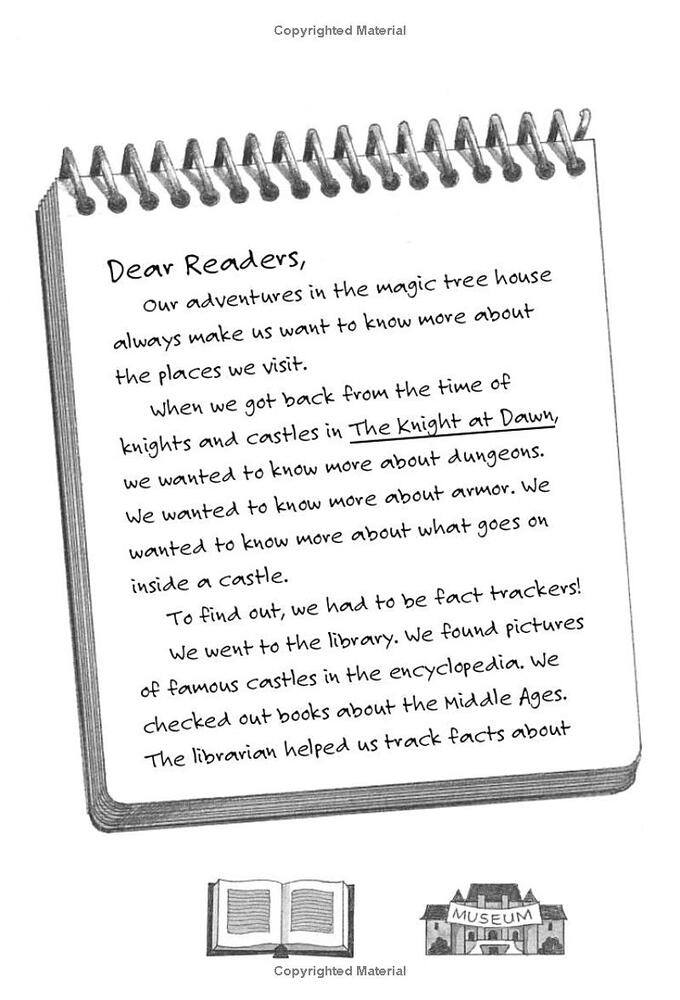 Copyrighted Material
Dear Readers,
Our adventures in the magic tree house
always make us want to know more about
the places we visit.
When we got back from the time of
knights and castles in The Knight at Dawn,
we wanted to know more about dungeons.
We wanted to know more about armor. We
wanted to know more about what goes on
inside a castle.
To find out, we had to be fact trackers!
We went to the library. We found pictures
of famous castles in the encyclopedia. We
checked out books about the Middle Ages.
The librarian helped us track facts about
MUSEUM
Copyrighted Material